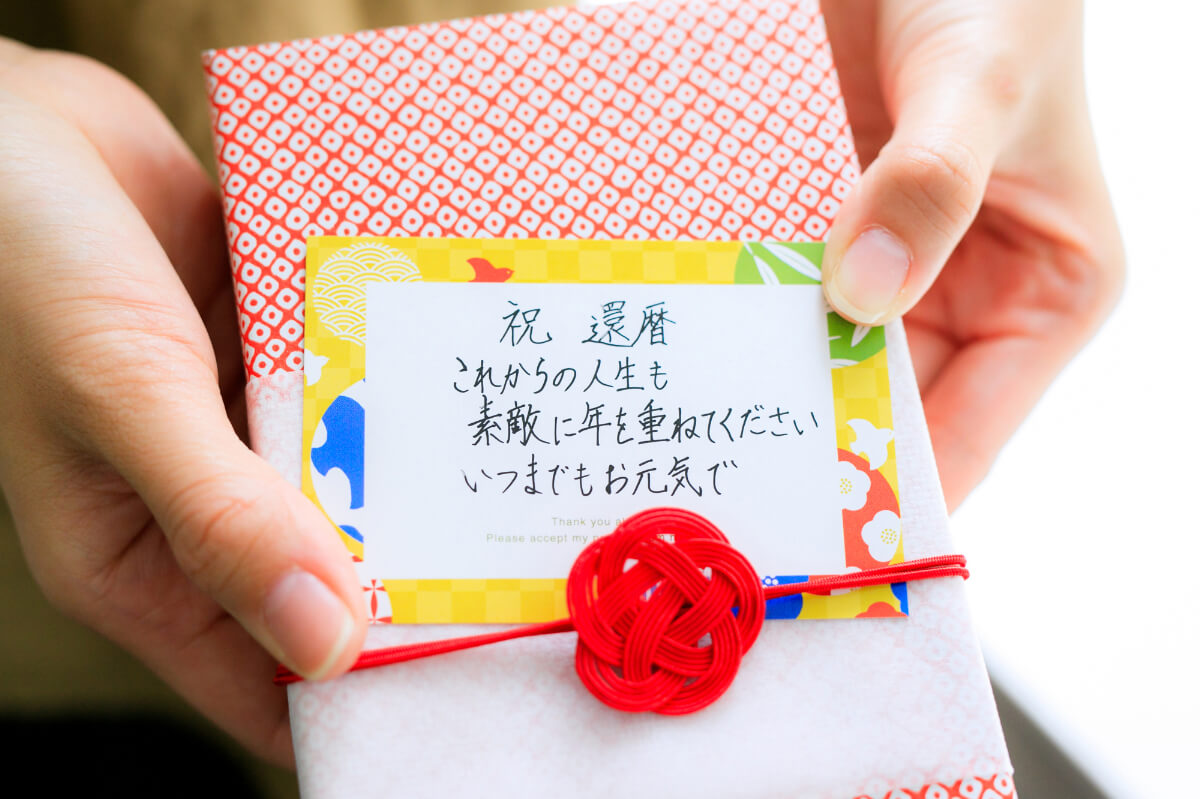 祝 還暦
これからの人生も
素敵に年を重ねてください
いつまでもお元気で
Thank you
Please accept my